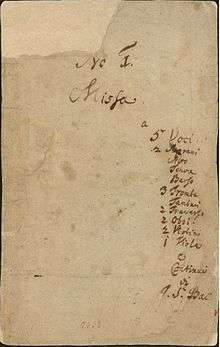 No 1.
Missa
a
5 Voci.
2 Soprani
Alto
Tenore
Basso
3 Trombe
Tamburi
2 Travers
2 Oboi
2 Violini
1 Viola
e
Continuo
di
J. S. Bac